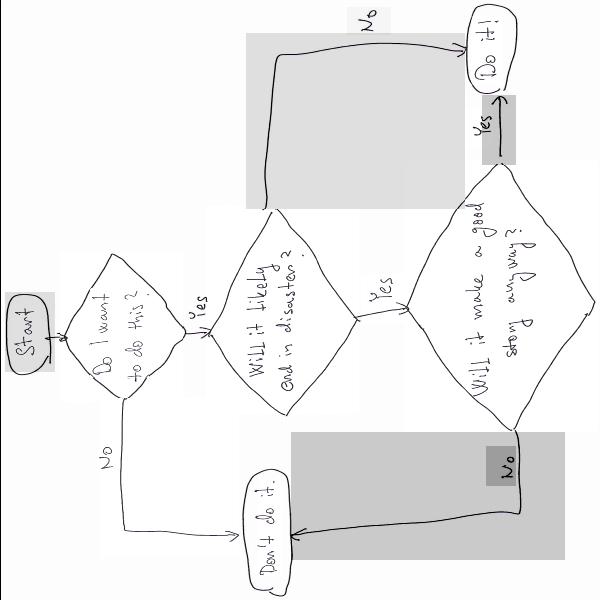 Start
Do I want
to do this?
No
Yes
Will it likely
end in disaster?
No
Yes
Will it make a good
story anyway?
Yes
No
Do it!
Don't do it.